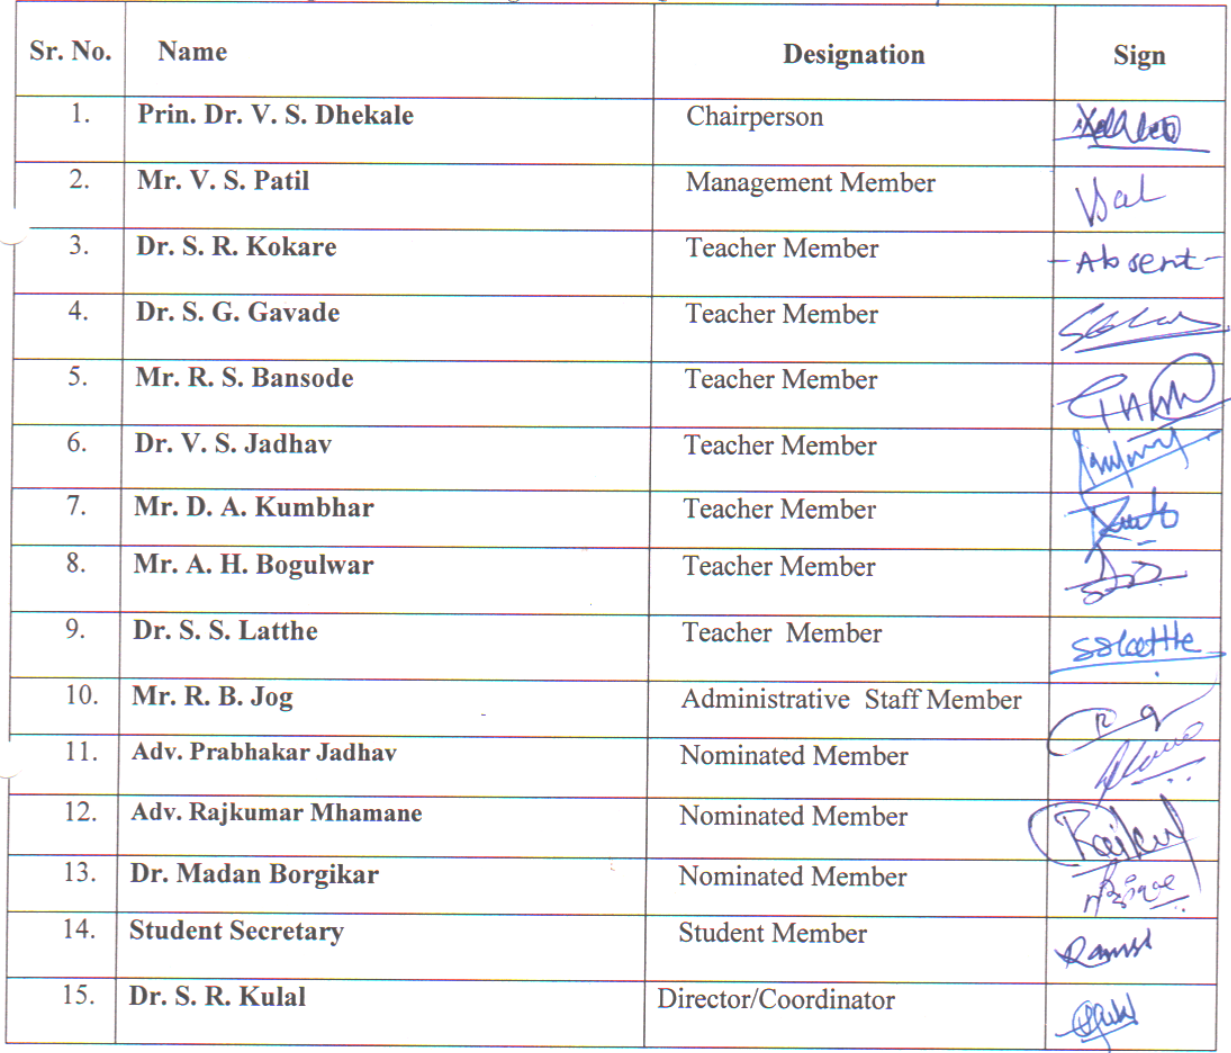 Sr. No. Name Designation Sign
1. Prin. Dr. V. S. Dhekale Chairperson
2. Mr. V. S. Patil Management Member
3. Dr. S. R. Kokare Teacher Member -Absent-
4. Dr. S. G. Gavade Teacher Member
5. Mr. R. S. Bansode Teacher Member
6. Dr. V. S. Jadhav Teacher Member
7. Mr. D. A. Kumbhar Teacher Member
8. Mr. A. H. Bogulwar Teacher Member
9. Dr. S. S. Latthe Teacher Member SSLatthe
10. Mr. R. B. Jog Administrative Staff Member
11. Adv. Prabhakar Jadhav Nominated Member
12. Adv. Rajkumar Mhamane Nominated Member
13. Dr. Madan Borgikar Nominated Member
14. Student Secretary Student Member
15. Dr. S. R. Kulal Director/Coordinator